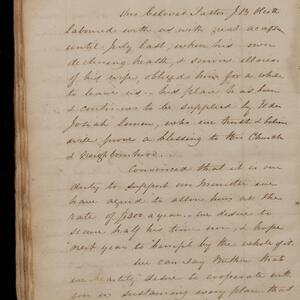 Our beloved Pastor J. B.
laboured with us with great
until July last, when his own
declining health, & serious illness
of his wife, obliged him for a while
to leave us - his place has been
& continues to be supplied by Elder
Josiah who we trust & believe
will prove a blessing to this Church
& Neighbourhood
Convinced that it is our
duty to support our Minister we
have agreed to allow him at the
rate of $200 a year - we desire to
secure half his time now, & hope
next year to benefit by the whole of it
We can say Brethren that
we desire to cooperate with
you in sustaining every plan that